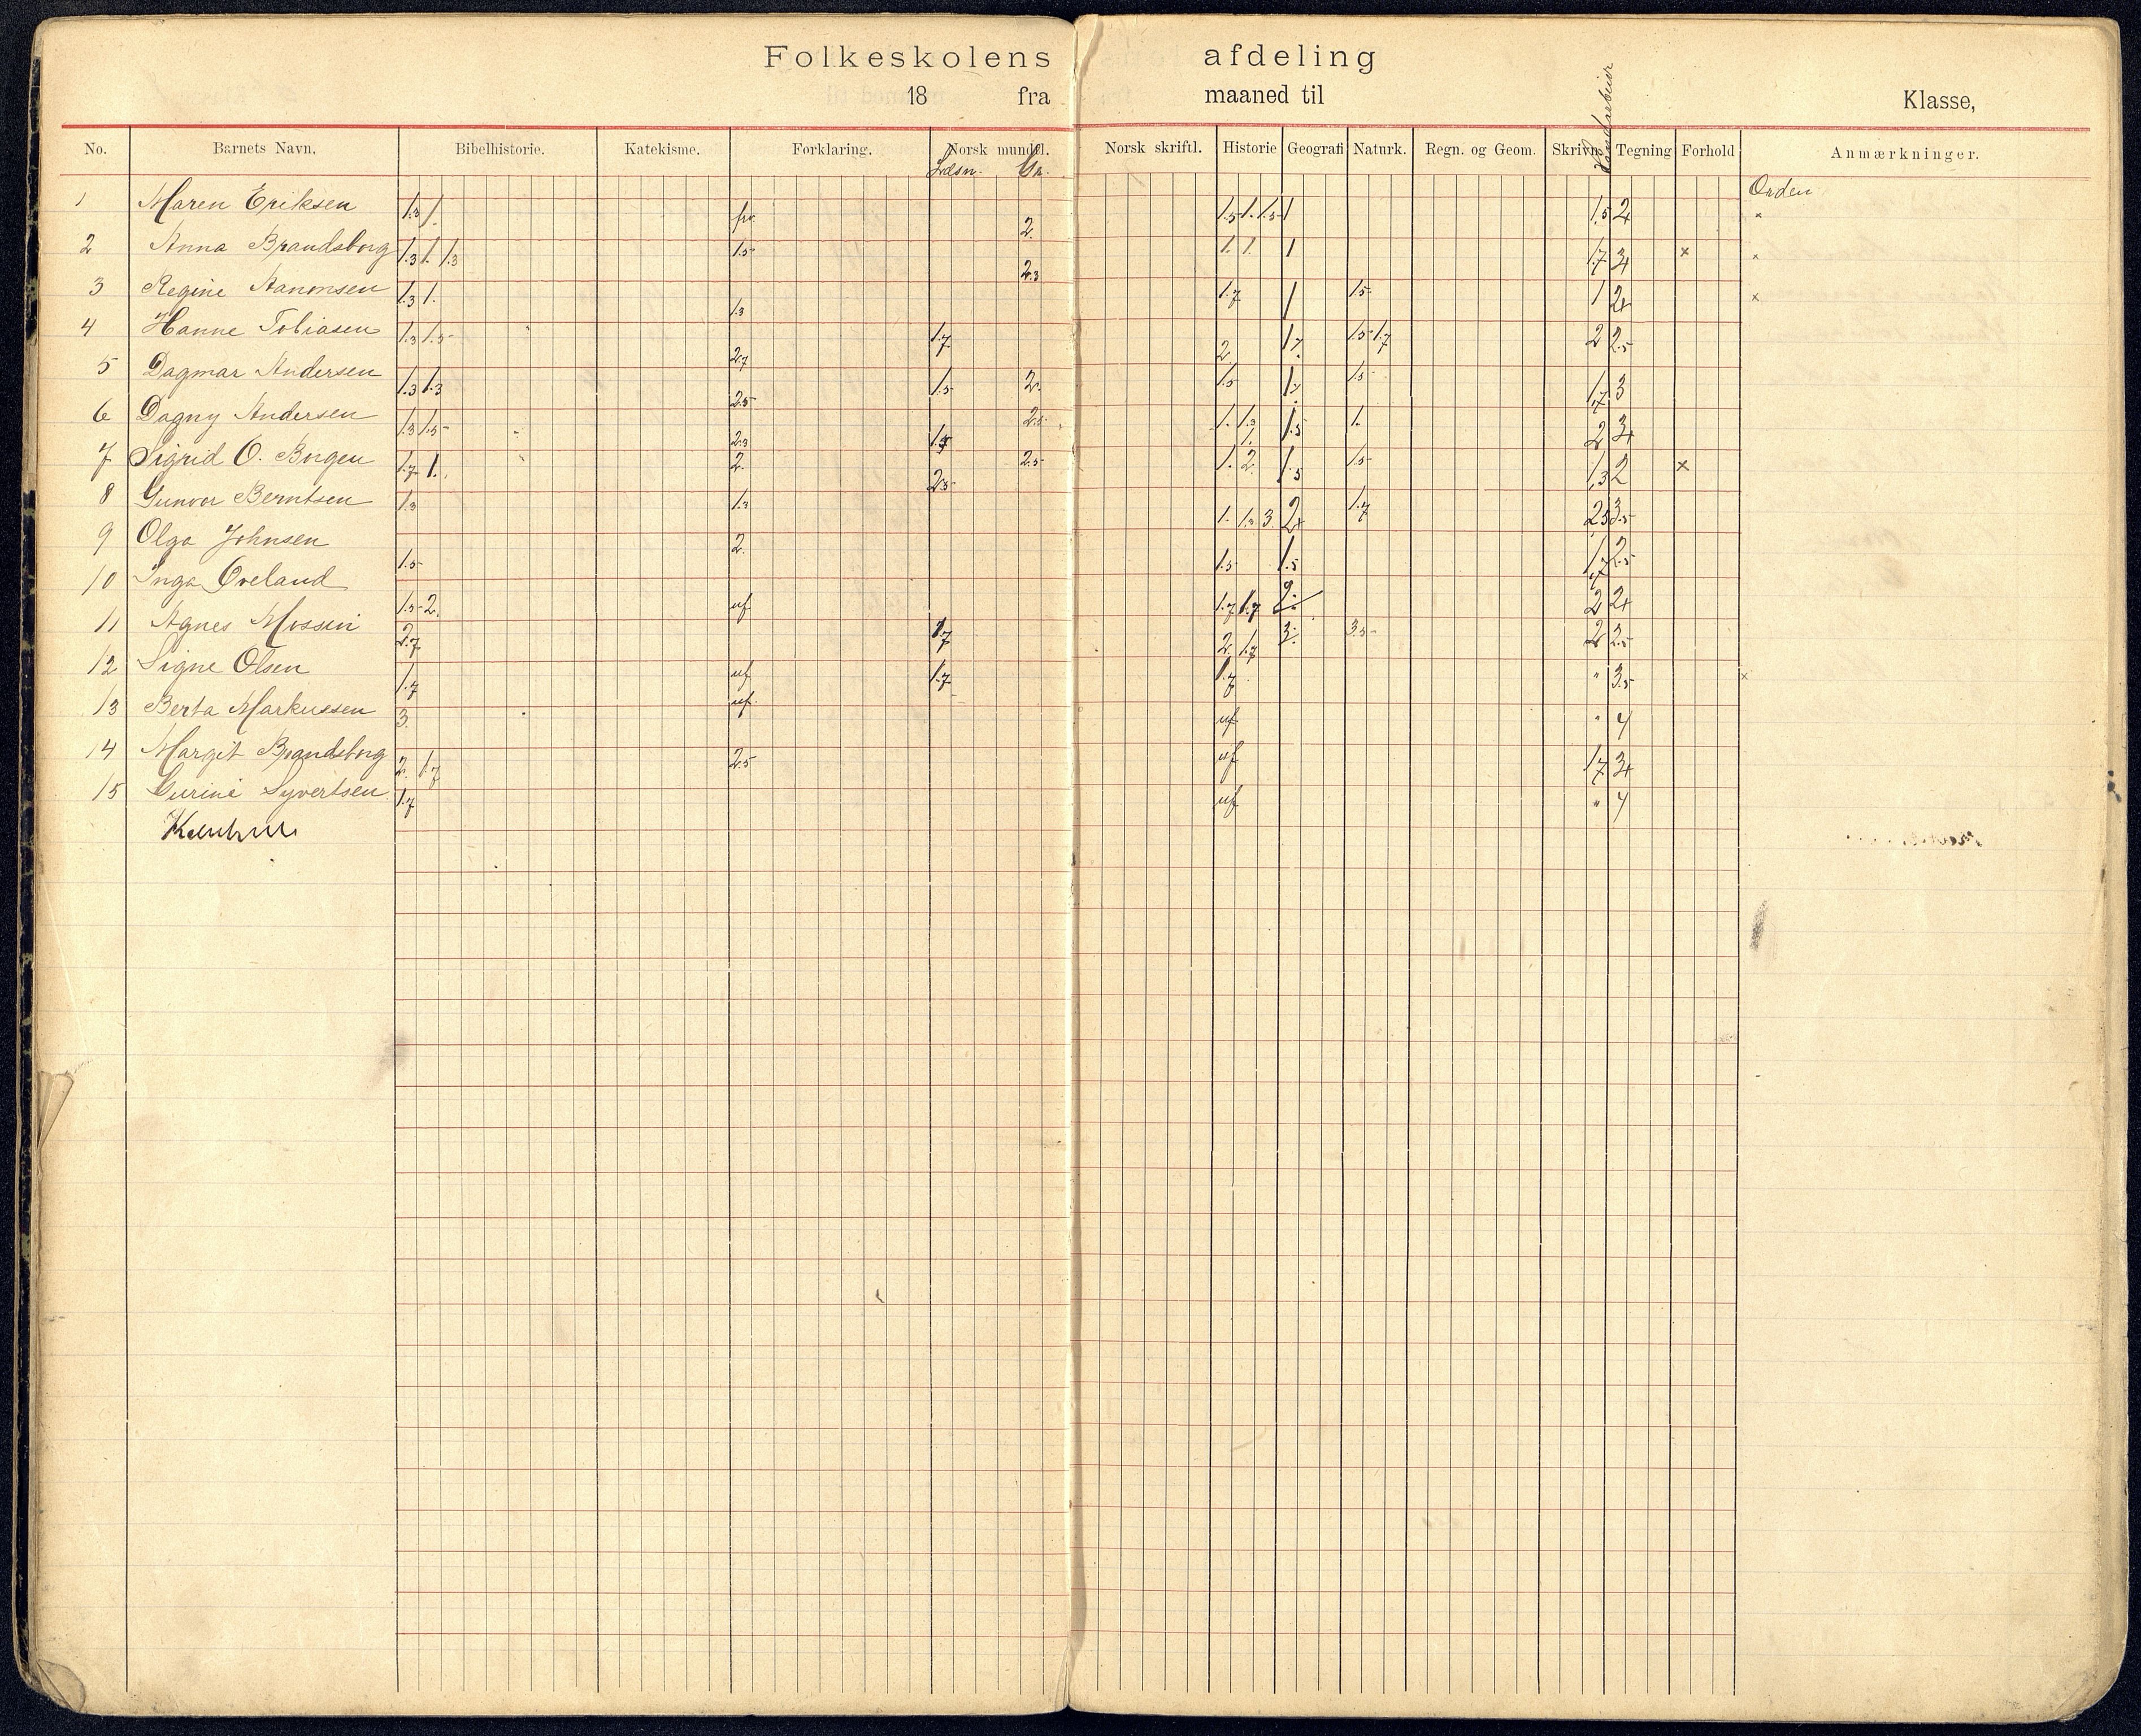 Folkeskolens afdeling
18 fra maaned til Klasse,
No. Barnets Navn. Bibelhistorie. Katekisme. Forklaring. Norsk mundtl. Norsk skriftl. Historie Geografi Naturk. Regn. og Geom. Skrivn. Haandarbeide Tegning Forhold Anmærkninger.
Læsn. Gr. Orden
1 Maren Eriksen 1.3 1. 2. 1.5 1. 1.5 1 1.5 2 "
2 Anna Brandsborg 1.3 1. 1.3 1.5 2.3 1. 1. 1 1.7 3+ x "
3 Regine Aanonsen 1.3 1. 1.3 1.7 1 1.5 1 2+ x
4 Hanne Tobiasen 1.3 1.5 2.7 1.7 2 1.7 1.5 1.7 2 2.5
5 Dagmar Andersen 1.3 1.3 2.5 1.5 2. 1.5 1.5 1.7 3
6 Dagny Andersen 1.3 1.5 2.3 2.5 1. 1.3 1.5 1. 2 3+
7 Sigrid O. Borgen 1.7 1. 2. 2.5 2.5 1. 2. 1.5 1.5 1.3 2 x
8 Gunvor Berntsen 1.3 1.3 1. 1.3 3. 2+ 1.7 2.5 3.5
9 Olga Johnsen 1.5 2. 1.5 1.5 1.7 2.5
10 Inga Oveland 1.5 2. uf 1.7 1.7 2 2+
11 Agnes Mossin 2.7 1.7 2. 1.7 3. 3.5 2 2.5
12 Signe Olsen 1.7 uf 1.7 1.7 " 3.5 x
13 Berta Markussen 3. uf uf " 4
14 Margit Brandsborg 2. 1.7 2.5 uf 1.7 3+
15 Gurine Syvertsen 1.7 uf " 4